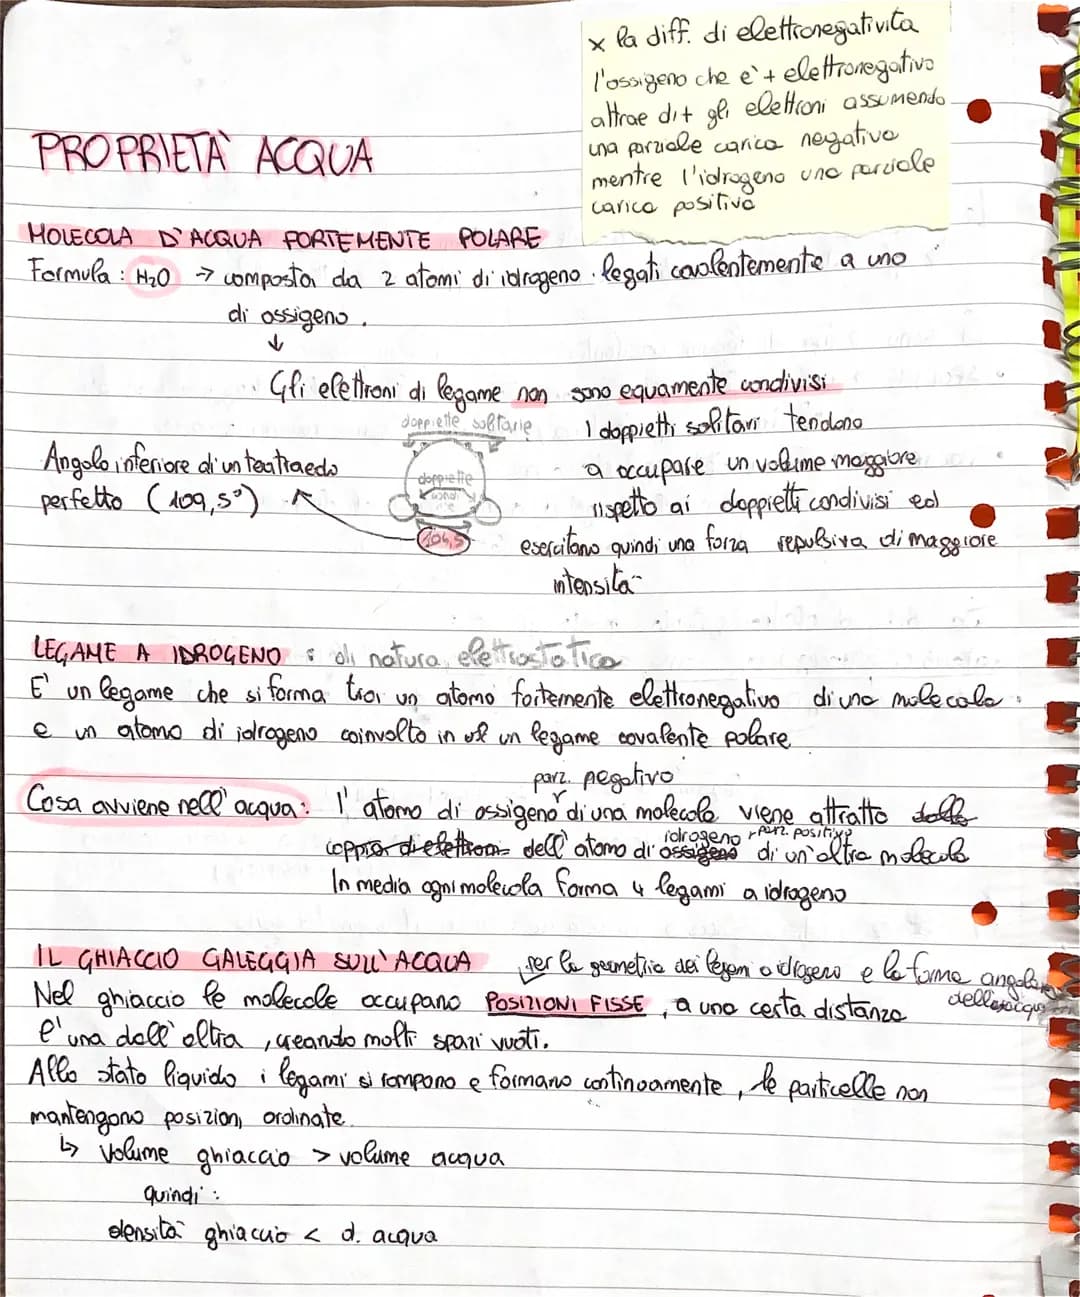 x la diff. di elettronegatività
l'ossigeno che e' + elettronegativo
attrae di+ gli elettroni assumendo
una parziale carica negativa
mentre l'idrogeno una parziale
carica positiva
PROPRIETÀ ACQUA
MOLECOLA D'ACQUA FORTEMENTE POLARE
Formula: H₂O → composta da 2 atomi di idrogeno legati covalentemente a uno
di ossigeno.
↓
Gli elettroni di legame non sono equamente condivisi
doppiette solitarie
doppiette
condi
104,5
Angolo inferiore di un teatraedo
perfetto (109,5°)
I doppietti solitari tendono
a occupare un volume maggiore
rispetto ai doppietti condivisi ed
esercitano quindi una forza repulsiva di maggiore
intensità
LEGAME A IDROGENO : di natura elettrostatica
E' un legame che si forma tra un atomo fortemente elettronegativo di una molecola
e un atomo di idrogeno coinvolto in un legame covalente polare
parz. negativo
Cosa avviene nell'acqua: l'atomo di ossigeno di una molecola viene attratto dalla
idrogeno parz. positivo
coppia di elettroni dell'atomo di ossigeno di un'altra molecola
In media ogni molecola forma 4 legami a idrogeno
IL GHIACCIO GALEGGIA SULL'ACQUA per la geometria dei legami a idrogeno e la forma angolare
dell'acqua
Nel ghiaccio le molecole occupano POSIZIONI FISSE, a una certa distanza
l'una dall'altra, creando molti spazi vuoti.
Allo stato liquido i legami si rompono e formano continuamente, le particelle non
mantengono posizioni ordinate
↳ Volume ghiaccio > volume acqua
quindi:
densità ghiaccio < d. acqua